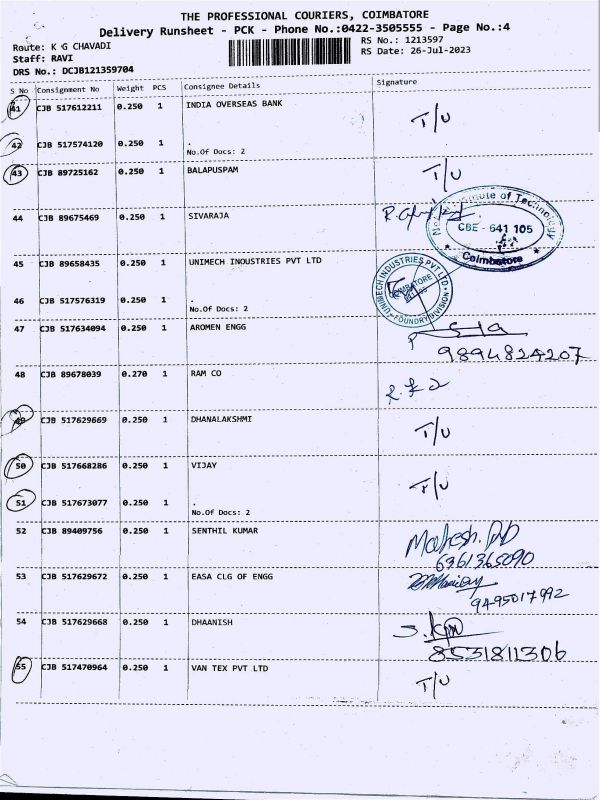 THE PROFESSIONAL COURIERS, COIMBATORE
Delivery Runsheet - PCK - Phone No.:0422-3505555 - Page No.:4
Route: K G CHAVADI RS No.: 1213597
Staff: RAVI RS Date: 26-Jul-2023
DRS No.: DCJB121359704
S No Consignment No Weight PCS Consignee Details Signature
41 CJB 517612211 0.250 1 INDIA OVERSEAS BANK T/U
42 CJB 517574120 0.250 1 .
No.Of Docs: 2
43 CJB 89725162 0.250 1 BALAPUSPAM T/U
44 CJB 89675469 0.250 1 SIVARAJA
Institute of Technology
CBE - 641 105
Coimbatore
45 CJB 89658435 0.250 1 UNIMECH INOUSTRIES PVT LTD
UNIMECH INDUSTRIES PVT LTD
COIMBATORE
FOUNDRY DIVISION
46 CJB 517576319 0.250 1 .
No.Of Docs: 2
47 CJB 517634094 0.250 1 AROMEN ENGG
9894824207
48 CJB 89678039 0.270 1 RAM CO
49 CJB 517629669 0.250 1 DHANALAKSHMI T/U
50 CJB 517668286 0.250 1 VIJAY T/U
51 CJB 517673077 0.250 1 .
No.Of Docs: 2
52 CJB 89409756 0.250 1 SENTHIL KUMAR
6361365090
53 CJB 517629672 0.250 1 EASA CLG OF ENGG
9495017992
54 CJB 517629668 0.250 1 DHAANISH
8531811306
55 CJB 517470964 0.250 1 VAN TEX PVT LTD T/U